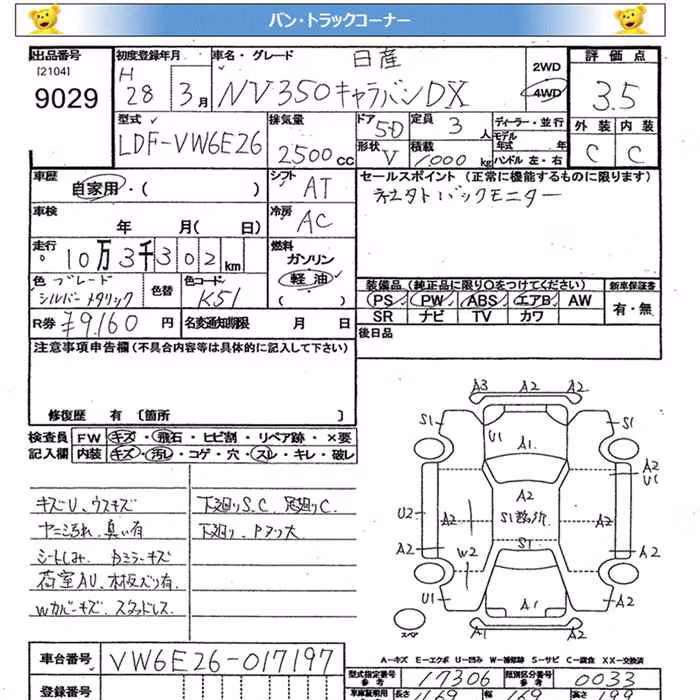 バン・トラックコーナー
出品番号 初度登録年月 車名・グレード 日産 2WD 評価点
[2104] H 4WD
9029 28 3月 NV350キャラバンDX 3.5
型式 排気量 ドア 5D 定員 3人 ディーラー・並行 外装 内装
LDF-VW6E26 2500cc 形状 V 積載 1000kg モデル年式 年 C C
ハンドル 左・右
車歴 シフト セールスポイント(正常に機能するものに限ります)
自家用・( ) AT バックモニター
車検 冷房
年 月(日) AC
走行 燃料
10万3千302km ガソリン
軽油
色 ブレード 色替 色コード ( ) 装備品(純正品に限り○をつけてください) 新車保証書
シルバーメタリック K51 PS PW ABS エアB AW 有・無
R券 ¥9,160円 名変通知期限 月 日 SR ナビ TV カワ
注意事項申告欄(不具合内容等は具体的に記入して下さい) 後日品
修復歴 有 [箇所 ]
検査員 FW キズ・飛石・ヒビ割・リペア跡・×要
記入欄 内装 キズ・汚レ・コゲ・穴・スレ・キレ・破レ
キズU、ウスキズ 下廻りS.C 足廻りC.
ヤニ汚れ、臭い有 下廻り、Pアリ大
シートしみ、
荷室AU、木板ズリ有
Wカバーキズ、スタッドレス.
A3 A2 A2
S1 U1 A1 S1
A2 U1
A2
U2 A2 S1 A2
A2 W2 S1 A2
U1 A1 A2
スペア A1 A2
A-キズ E-エクボ U-凹み W-補修跡 S-サビ C-腐食 XX-交換済
車台番号 VW6E26-017197
型式指定番号 参考 17306 類別区分番号 参考 0033
登録番号 車庫証明用 参考 長さ 469 幅 169 高さ